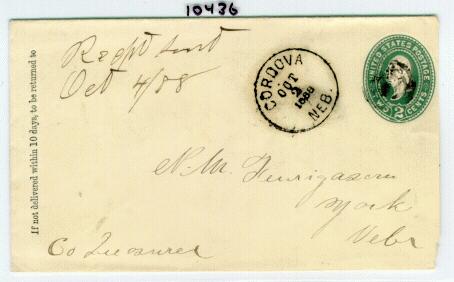 10436
If not delivered within 10 days, to be returned to
Rec'pt sent
Oct 4/88
CORDOVA
OCT
2
1888
NEB.
UNITED STATES POSTAGE
TWO 2 CENTS
N. M.
York
Nebr
Co Treasurer